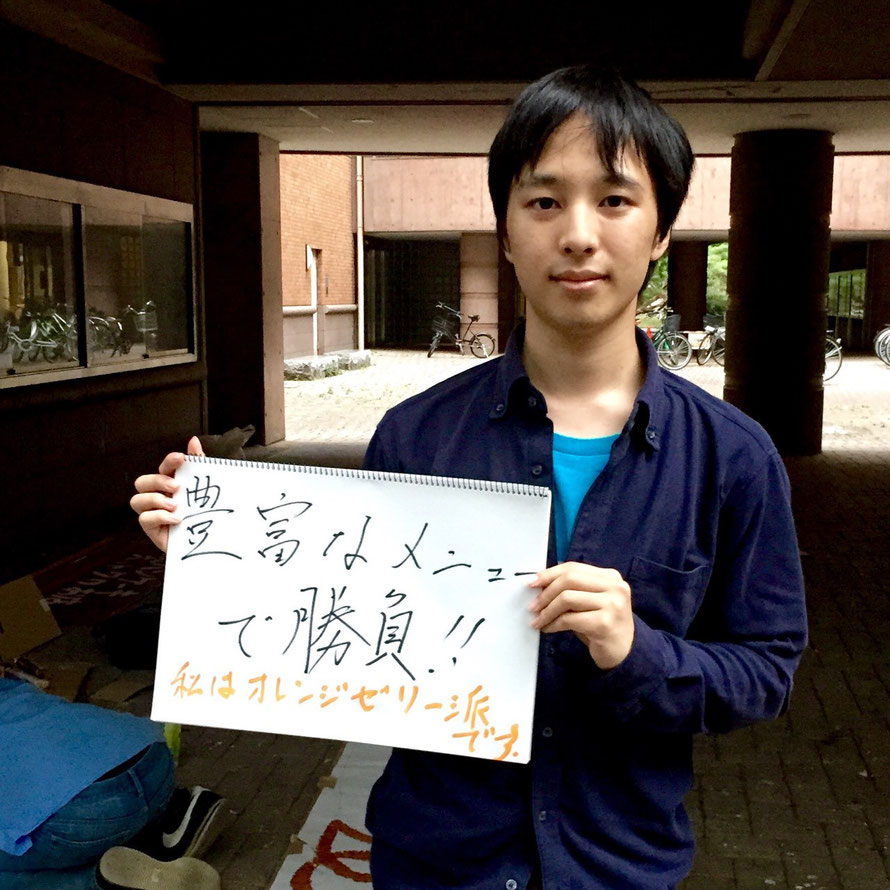 豊富なメニュー
で勝負!!
私はオレンジゼリー派
です.